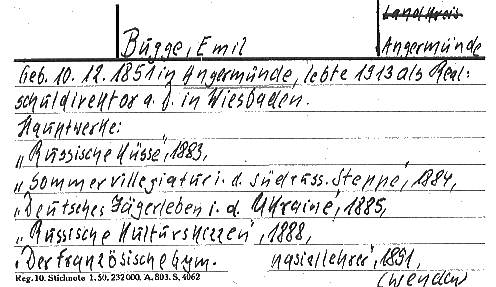 Landkreis
Bugge, Emil
Angermünde
Geb. 10. 12. 1851 in Angermünde, lebte 1913 als Real=
schuldirektor a. D. in Wiesbaden.
Hauptwerke:
„Russische Küsse", 1883,
„Sommervillegiatur i. d. südruss. Steppe", 1884,
„Deutsches Jägerleben i. d. Ukraine", 1885,
„Russische Kulturskizzen", 1888,
„Der französische Gym. nasiallehrer", 1891,
Reg. 10. Stichnote 1. 50. 232000. A. 803. S. 4062
(wenden)